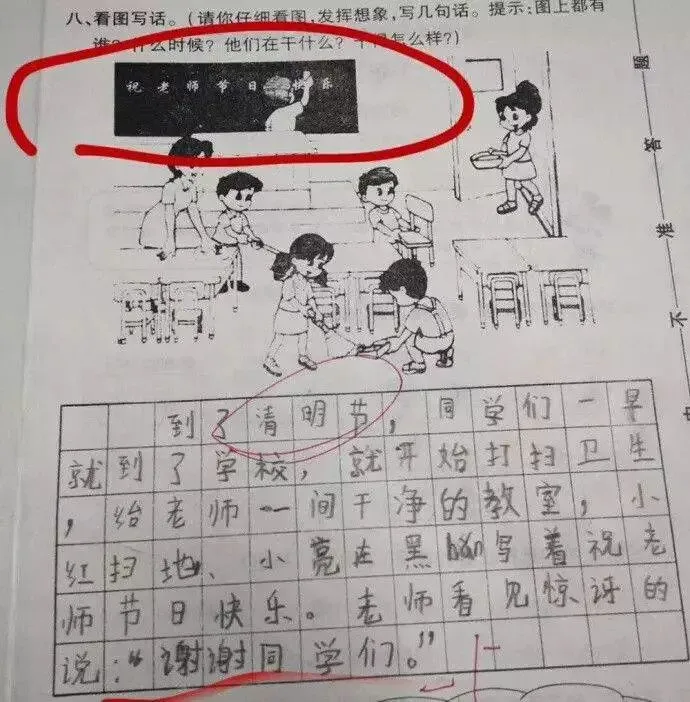 八、看图写话。(请你仔细看图,发挥想象,写几句话。提示:图上都有
谁?什么时候?他们在干什么?
怎么样?)
祝老师节日快乐
到了清明节,同学们一早
就到了学校,就开始打扫卫生
,给老师一间干净的教室,小
红扫地、小亮在黑bǎn写着祝老
师节日快乐。老师看见惊讶的
说:“谢谢同学们。”
题
答
准
不